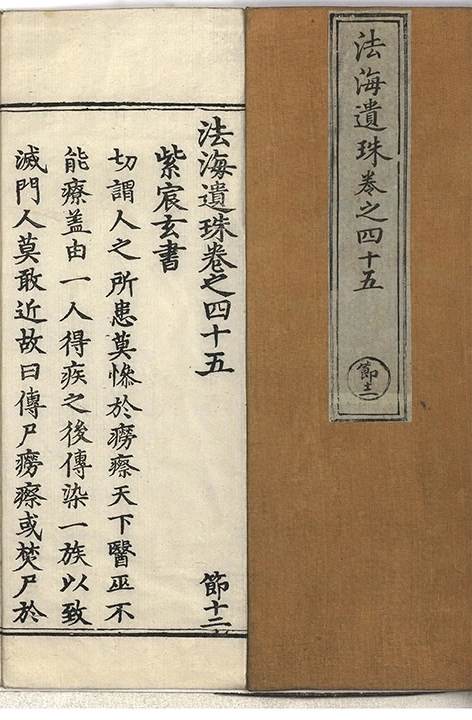 法海遺珠卷之四十五
節十二
法海遺珠卷之四十五
節十二
紫宸玄書
切謂人之所患莫慘於癆瘵天下醫巫不
能療盖由一人得疾之後傳染一族以致
滅門人莫敢近故曰傳尸癆瘵或焚尸於